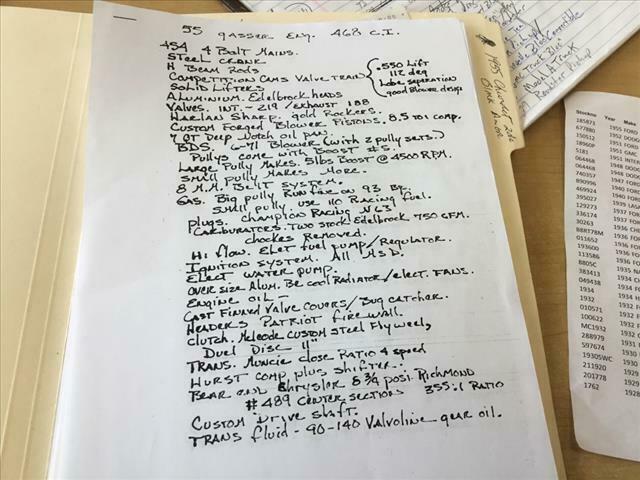 55 gasser Eng. 468 C.I.
454 4 Bolt Mains.
STEEL CRANK
H Beam Rods
Competition Cams Valve train
.550 Lift
112 deg
Lobe separation
good Blower design
Solid Lifters
Aluminum. Edelbrock heads
Valves. INT. - 219 / Exhaust 188
Harlan Sharp. gold Rockers.
Custom Forged Blower Pistons, 8.5 to 1 comp.
7 QT Deep Notch oil pan.
BDS. 6-71 Blower (with 2 pully sets.)
Pullys come with Boost #s.
Large Pully Makes. 5lbs Boost @ 4500 RPM.
Small pully Makes More.
8 M.M. Belt System.
Gas. Big pully Run fine on 93
Small pully. use 110 Racing fuel.
Plugs. Champion Racing N63Y
Carburators. Two stock Edelbrock 750 CFM.
chockes Removed.
Hi flow. Elet fuel pump/Regulator.
Ignition system. All M.S.D.
Elect water pump.
over size Alum. Be cool Radiator/elect. Fans.
Engine oil -
Cast Finned Valve covers/Bug catcher.
Headers Patriot firewall.
Clutch. Mcleode custom steel Flyweel,
Duel Disc 11"
TRANS. Muncie close Ratio 4 speed
Hurst comp plus shifter.
Rear end Chrysler 8 3/4 posi. Richmond
#489 Center sections 355:1 Ratio
Custom Drive shaft.
TRANS fluid - 90-140 Valvoline gear oil.
1955 Chevrolet
Stockno Year Make
185873 1955 FORD
677880 1952
150512 1951
18960P 1951
5181 1951
064468 1948
064468 1946
740357 1947
890996 1940
469924 1940
395027 1939
129273 1937
336174 1937
30263 1936
88RT78M 1936
011652 1936
193600 1936
113586 1935
8805C 1935
383413 1934
049438 1934
1934
1932
010571 1932
100622 1932
MC1932 1932
288979 1931
S97674 1930
19305WC 1930
211920 1930
201778 1929
1762 1928